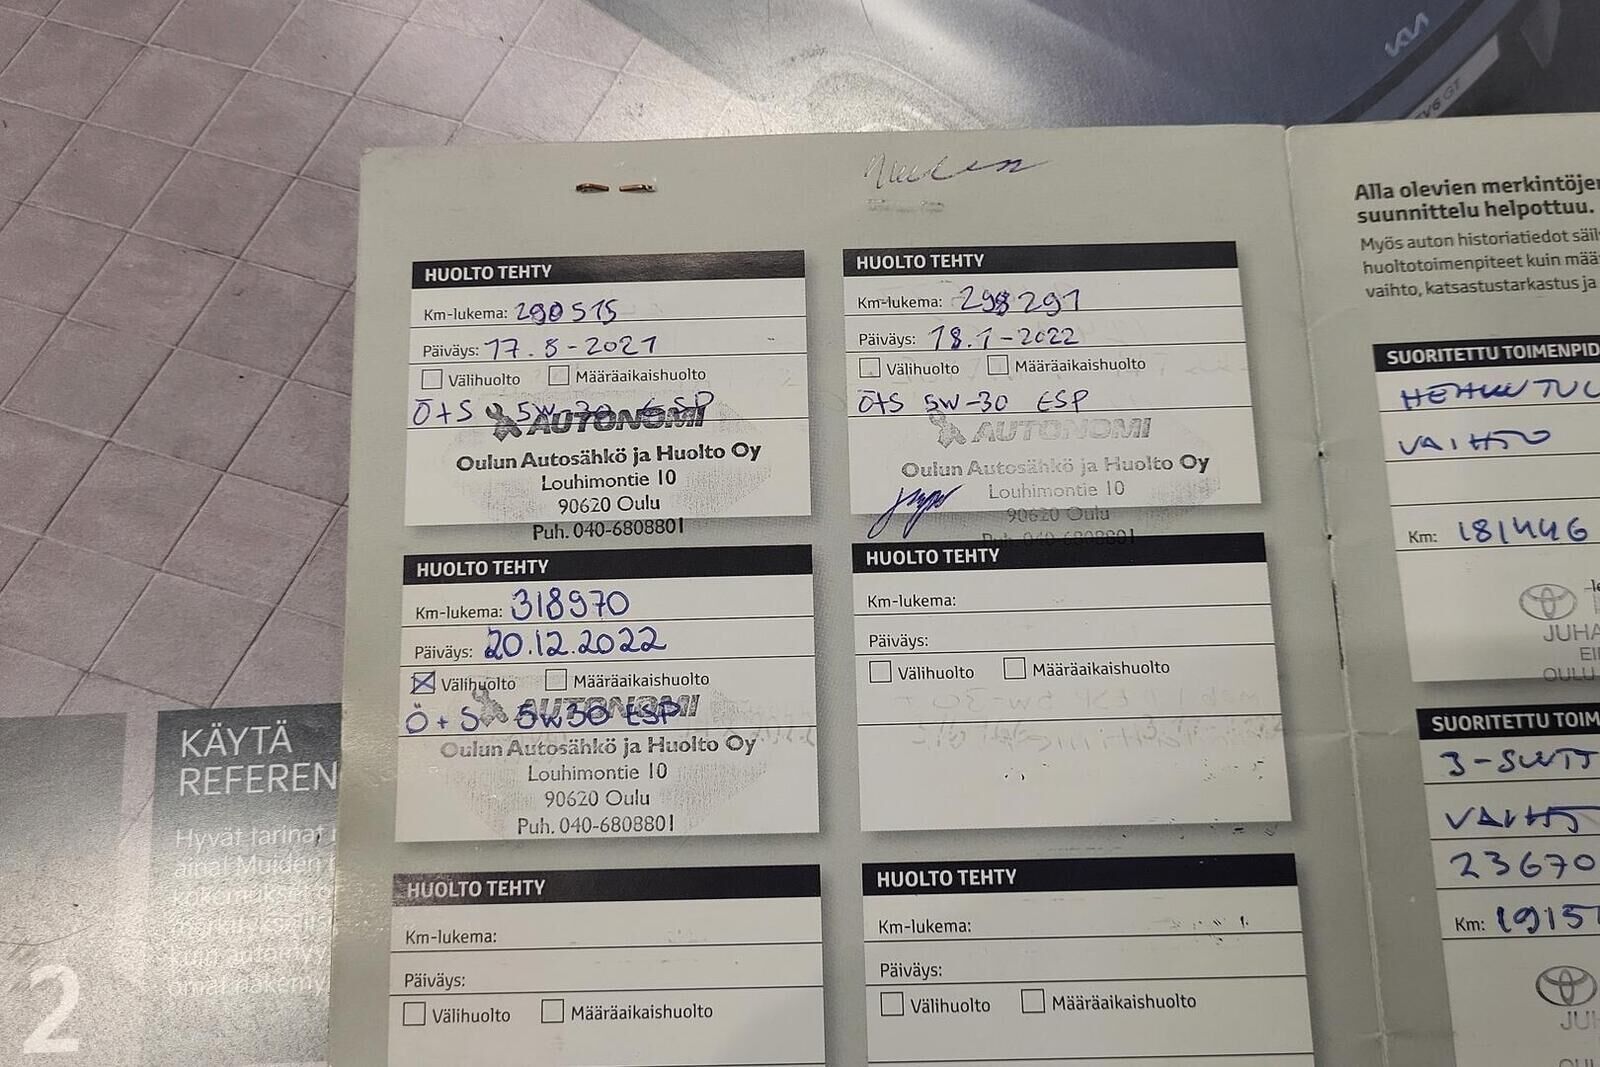 KIA
EV6 GT
HUOLTO TEHTY
Km-lukema: 290515
Päiväys: 17.8-2021
Välihuolto Määräaikaishuolto
Ö+S 5W-30 ESP
AUTONOMI
Oulun Autosähkö ja Huolto Oy
Louhimontie 10
90620 Oulu
Puh. 040-6808801
HUOLTO TEHTY
Km-lukema: 298291
Päiväys: 18.1-2022
Välihuolto Määräaikaishuolto
Ö+S 5W-30 ESP
AUTONOMI
Oulun Autosähkö ja Huolto Oy
Louhimontie 10
90620 Oulu
Puh. 040-6808801
HUOLTO TEHTY
Km-lukema: 318970
Päiväys: 20.12.2022
Välihuolto Määräaikaishuolto
Ö+S 5W30 ESP
AUTONOMI
Oulun Autosähkö ja Huolto Oy
Louhimontie 10
90620 Oulu
Puh. 040-6808801
HUOLTO TEHTY
Km-lukema:
Päiväys:
Välihuolto Määräaikaishuolto
HUOLTO TEHTY
Km-lukema:
Päiväys:
Välihuolto Määräaikaishuolto
HUOLTO TEHTY
Km-lukema:
Päiväys:
Välihuolto Määräaikaishuolto
Alla olevien merkintöjen
suunnittelu helpottuu.
Myös auton historiatiedot säil
huoltotoimenpiteet kuin mää
vaihto, katsastustarkastus ja
SUORITETTU TOIMENPID
VAIHTO
Km: 181446
JUHA
OULU
SUORITETTU TOIM
VAIHTO
23670
Km: 19151
JUH
OUL
KÄYTÄ
REFEREN
Hyvät tarinat
aina! Muiden
kokemukset
kuin automyy
2